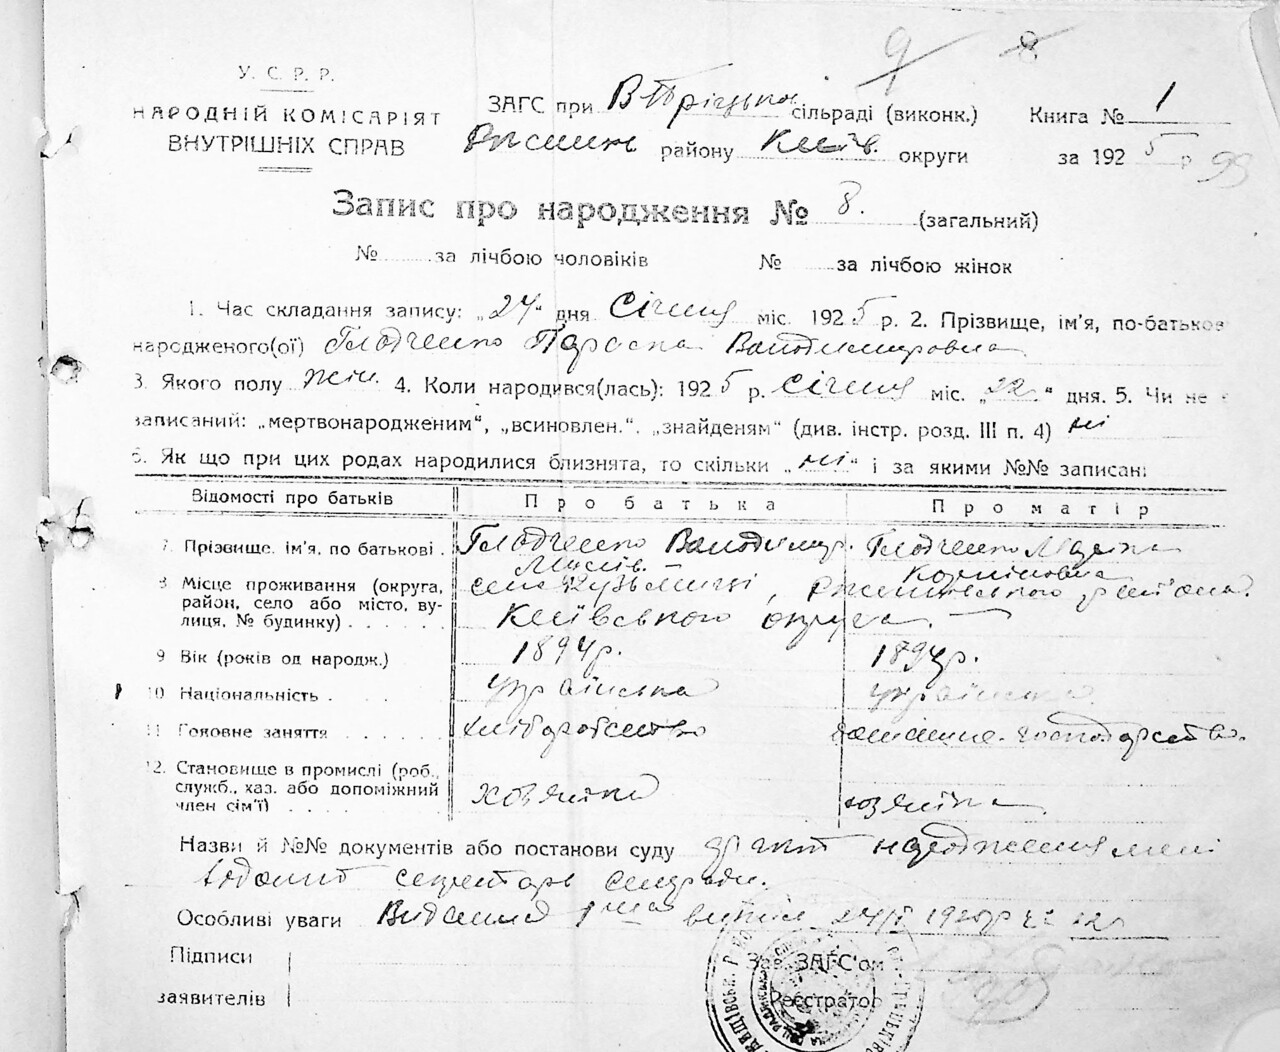 9 8
У. С. Р. Р.
НАРОДНІЙ КОМІСАРІЯТ
ВНУТРІШНІХ СПРАВ
ЗАГС при сільраді (виконк.) Книга № 1
району Київ. округи за 1925 р 99
Запис про народження № 8. (загальний)
№ за лічбою чоловіків № за лічбою жінок
1. Час складання запису: „24“ дня Січня міс. 1925 р. 2. Прізвище, ім'я, по-батькові
народженого(ої) Гладченко Параска Володимировна
3. Якого полу жін. 4. Коли народився(лась): 1925 р. Січня міс. „22“ дня. 5. Чи не є
записаний: „мертвонародженим“, „всиновлен.“, „знайденям“ (див. інстр. розд. III п. 4) ні
6. Як що при цих родах народилися близнята, то скільки „ні“ і за якими №№ записані
Відомості про батьків Про батька Про матір
7. Прізвище, ім'я, по батькові. Гладченко Володимир. Гладченко
8 Місце проживання (округа, село
район, село або місто, ву-
лиця, № будинку) Київського округа.
9 Вік (років од народж.) 1894 р. 1894 р.
10 Національність українська українська
11 Головне заняття хліборобство домашне господарство.
12. Становище в промислі (роб.,
служб., хаз. або допоміжний хозяїн
член сім'ї)
Назви й №№ документів або постанови суду народження
секретарь сельради.
Особливі уваги
Підписи
заявителів
Зав. ЗАГС'ом
Реєстратор